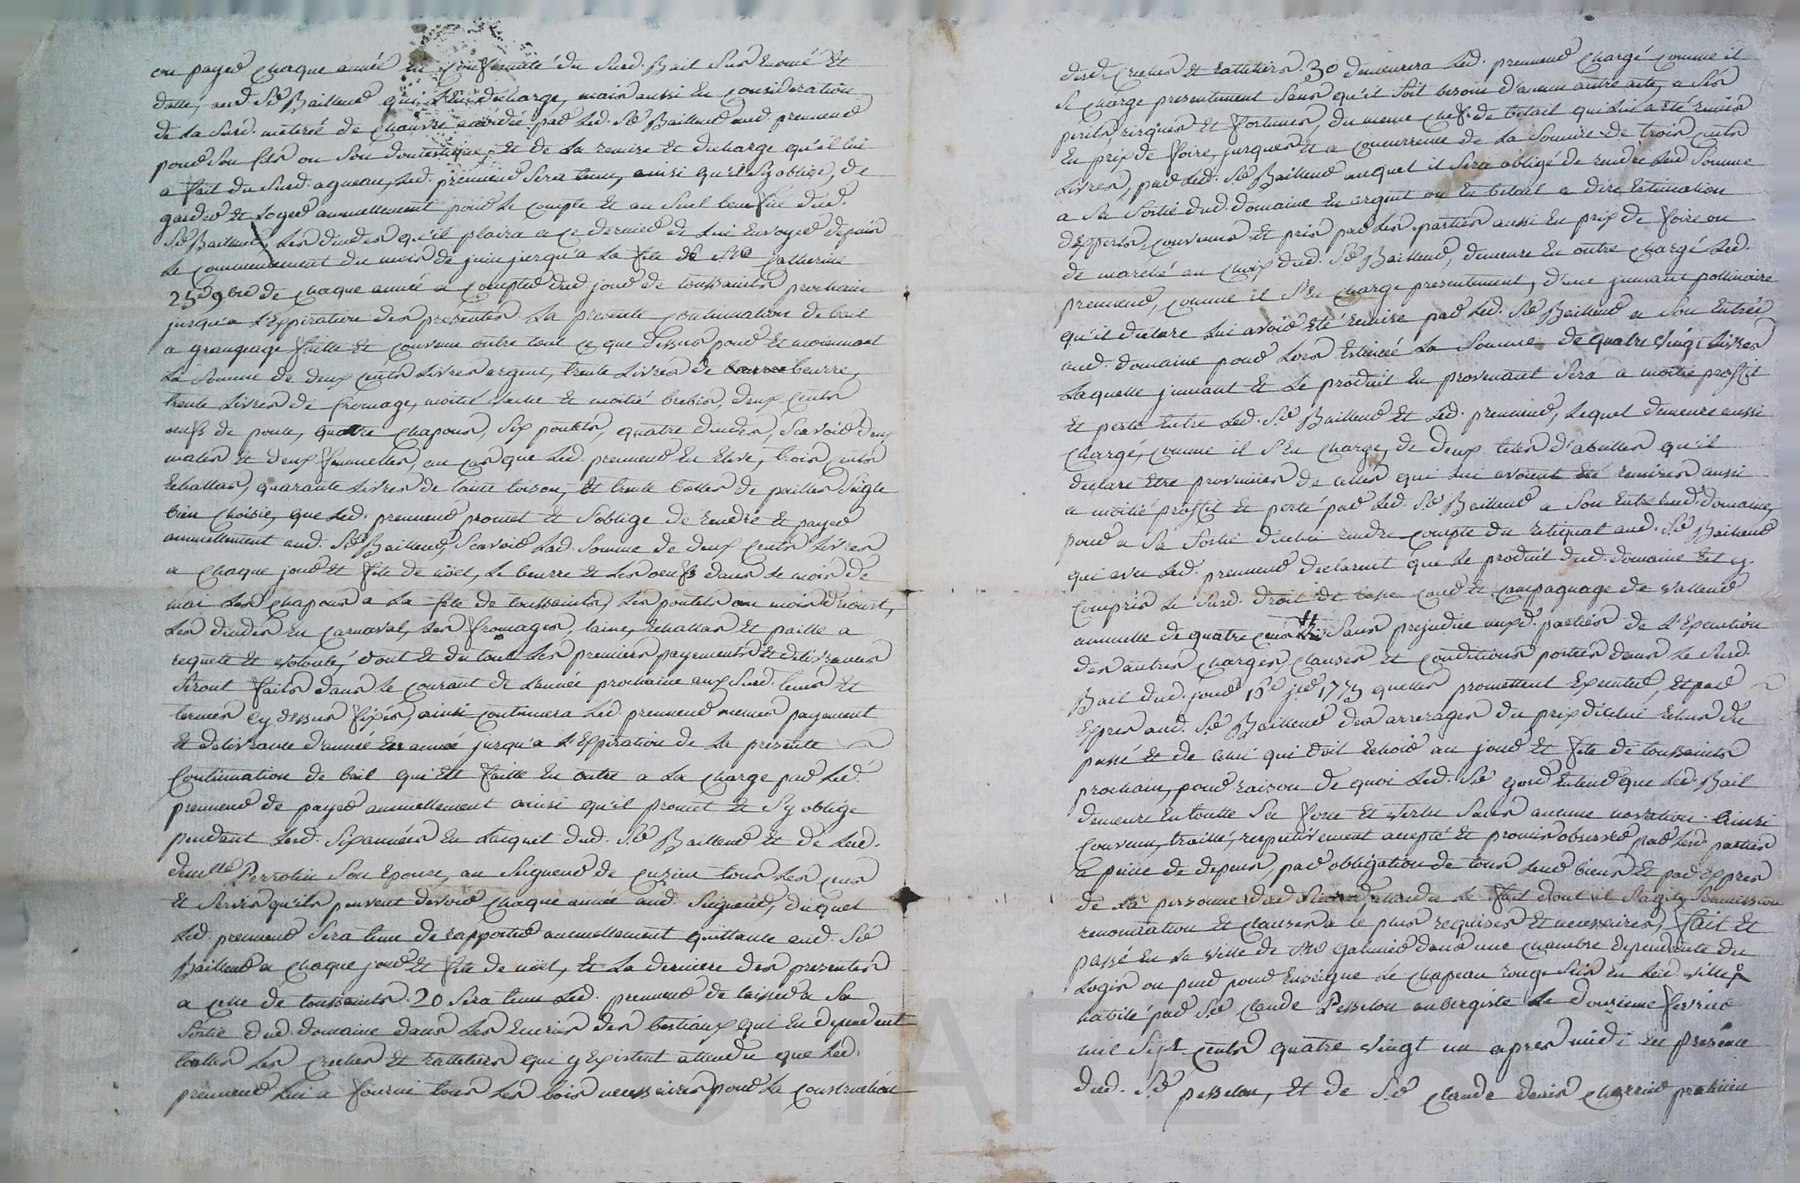 ou payer chaque année en conformité du Susd. Bail Sus Enoncé Et
datte, aud. Sr Bailleur qui L'en décharge, mais aussi En Considération
de La Susd. méterée de Chanvre accordée par Led. Sr Bailleur aud. preneur
pour Son fils ou Son domestique, Et de La remise Et décharge qu'il lui
a fait du Susd. agneau, Led. preneur Sera tenu, ainsi qu'il S'y oblige, de
garder Et Loger annuellement pour Le Compte Et au Seul benefice dud.
Sr Bailleur, Les dindes qu'il plaira a ce dernier de Lui Envoyer depuis
Le commencement du mois de juin jusqu'a La fete de Ste Catherine
25 9bre de chaque année a Compter dud. jour de toussaints prochain
jusqu'a L'Expiration des presentes. La presente Continuation de bail
a grangeage faitte Et Convenu outre tout ce que dessus pour Et moiennant
La Somme de deux Cents Livres argent, trente Livres de beurre,
trente Livres de fromage, moitié vache Et moitié brebis, deux Cents
oeufs de poule, quatre chapons, Six poulets, quatre dindes, Scavoir deux
males Et deux femelles, au cas que Led. preneur En Eleve, trois Cents
Echallas, quarante Livres de laine toison, Et trente bottes de pailles Seigle
bien Choisie, que Led. preneur promet Et S'oblige de rendre Et payer
annuellement aud. Sr Bailleur, Scavoir Lad. Somme de deux Cents Livres
a Chaque jour Et fete de noel, Le beurre Et Les oeufs dans Le mois de
mai Les Chapons a La fete de toussaints, Les poulets au mois d'aoust,
Les dindes En Carnaval, Les fromages, laine, Echallas Et paille a
requete Et volonté, dont Et du tout Les premiers payements Et delivrances
Seront faits dans Le courant de L'année prochaine aux Susd. tems Et
termes cy dessus fixés, ainsi Continuera Led. preneur memes payement
Et delivrance d'année En année jusqu'a L'Expiration de La presente
Continuation de bail qui Est faitte En outre a La Charge par Led.
preneur de payer annuellement ainsi qu'il promet Et S'y oblige
pendant Lesd. Six années En L'acquit dud. Sr Bailleur Et de Lad.
demelle Perrotin Son Epouse, au Seigneur de tous Les cens
Et Servis qu'ils peuvent devoir Chaque année aud. Seigneur, duquel
Led. preneur Sera tenu de rapporter annuellement quittance aud. Sr
Bailleur a Chaque jour Et fete de noel, Et La derniere des presentes
a celle de toussaints. 20 Sera tenu Led. preneur de laisser a Sa
Sortie dud. domaine dans Les Ecuries des bestiaux qui En dependent
toutes Les Creches Et ratteliers qui y Existent attendu que Led.
preneur Lui a fourni tous Les bois necessaires pour La Construction
desd. Creches Et ratteliers. 30 demeurera Led. preneur Chargé comme il
Se Charge presentement Sans qu'il Soit besoin d'aucun autre acte, a Ses
perils, risques Et fortunes, du meme Chef de betail qui Lui a Eté remis
En prix de foire, jusques Et a concurrence de La Somme de trois Cents
Livres, par Led. Sr Bailleur auquel il Sera obligé de rendre Lad. Somme
a Sa Sortie dud. domaine En argent ou En betail a dire Estimation
d'Experts, Convenus Et pris par Les parties aussi En prix de foire ou
de marché au Choix dud. Sr Bailleur, demeure En outre Chargé Led.
preneur, comme il S'En Charge presentement, d'une jument
qu'il declare Lui avoir Eté remise par Led. Sr Bailleur a Son Entrée
aud. domaine pour Lors Estimée La Somme de quatre vingt Livres
Laquelle jument Et Le produit En provenant Sera a moitié proffit
Et perte Entre Led. Sr Bailleur Et Led. preneur, Lequel demeure aussi
Chargé, comme il S'En Charge, de deux têtes d'abeilles qu'il
declare Etre provenües de celles qui Lui avoient Eté remises aussi
a moitié proffit Et perte par Led. Sr Bailleur a Son Entrée aud. domaine,
pour a Sa Sortie d'icelui rendre Compte du reliquat aud. Sr Bailleur
qui avec Led. preneur declarent que Le produit dud. domaine Est y
Compris Le Susd. droit de basse cour Et Compagnage de valleur
annuelle de quatre cens Sans prejudice auxd. parties de L'Execution
des autres Charges, Clauses Et Conditions portées dans Le Susd.
Bail dud. jour 1775 qu'elles promettent Executer, Et par
Expres aud. Sr Bailleur des arrerages du prix d'icelui Echus du
passé Et de celui qui doit Echoir au jour Et fete de toussaints
prochain, pour raison de quoi Led. Sr Entend que Led. Bail
demeure En toutte Sa force Et vertu Sans aucune novation. Ainsi
Convenu, traitté, respectivement accepté Et promis observer par Lesd. parties
a peine de depens, par obligation de tous Leurs biens Et par Expres
de La personne dud. preneur attendu Le fait dont il S'agit, Soumission
renonciation Et clauses a ce plus requises Et necessaires, fait Et
passé En La Ville de St Galmier dans une Chambre dependante du
Logis ou pend pour Enseigne Le Chapeau rouge Sis En Lad. ville
habité par Sr Claude Pesselon aubergiste Le douzieme fevrier
mil Sept Cents quatre vingt un apres midi En presence
dud. Sr pesselon, Et de Sr Claude denis praticien